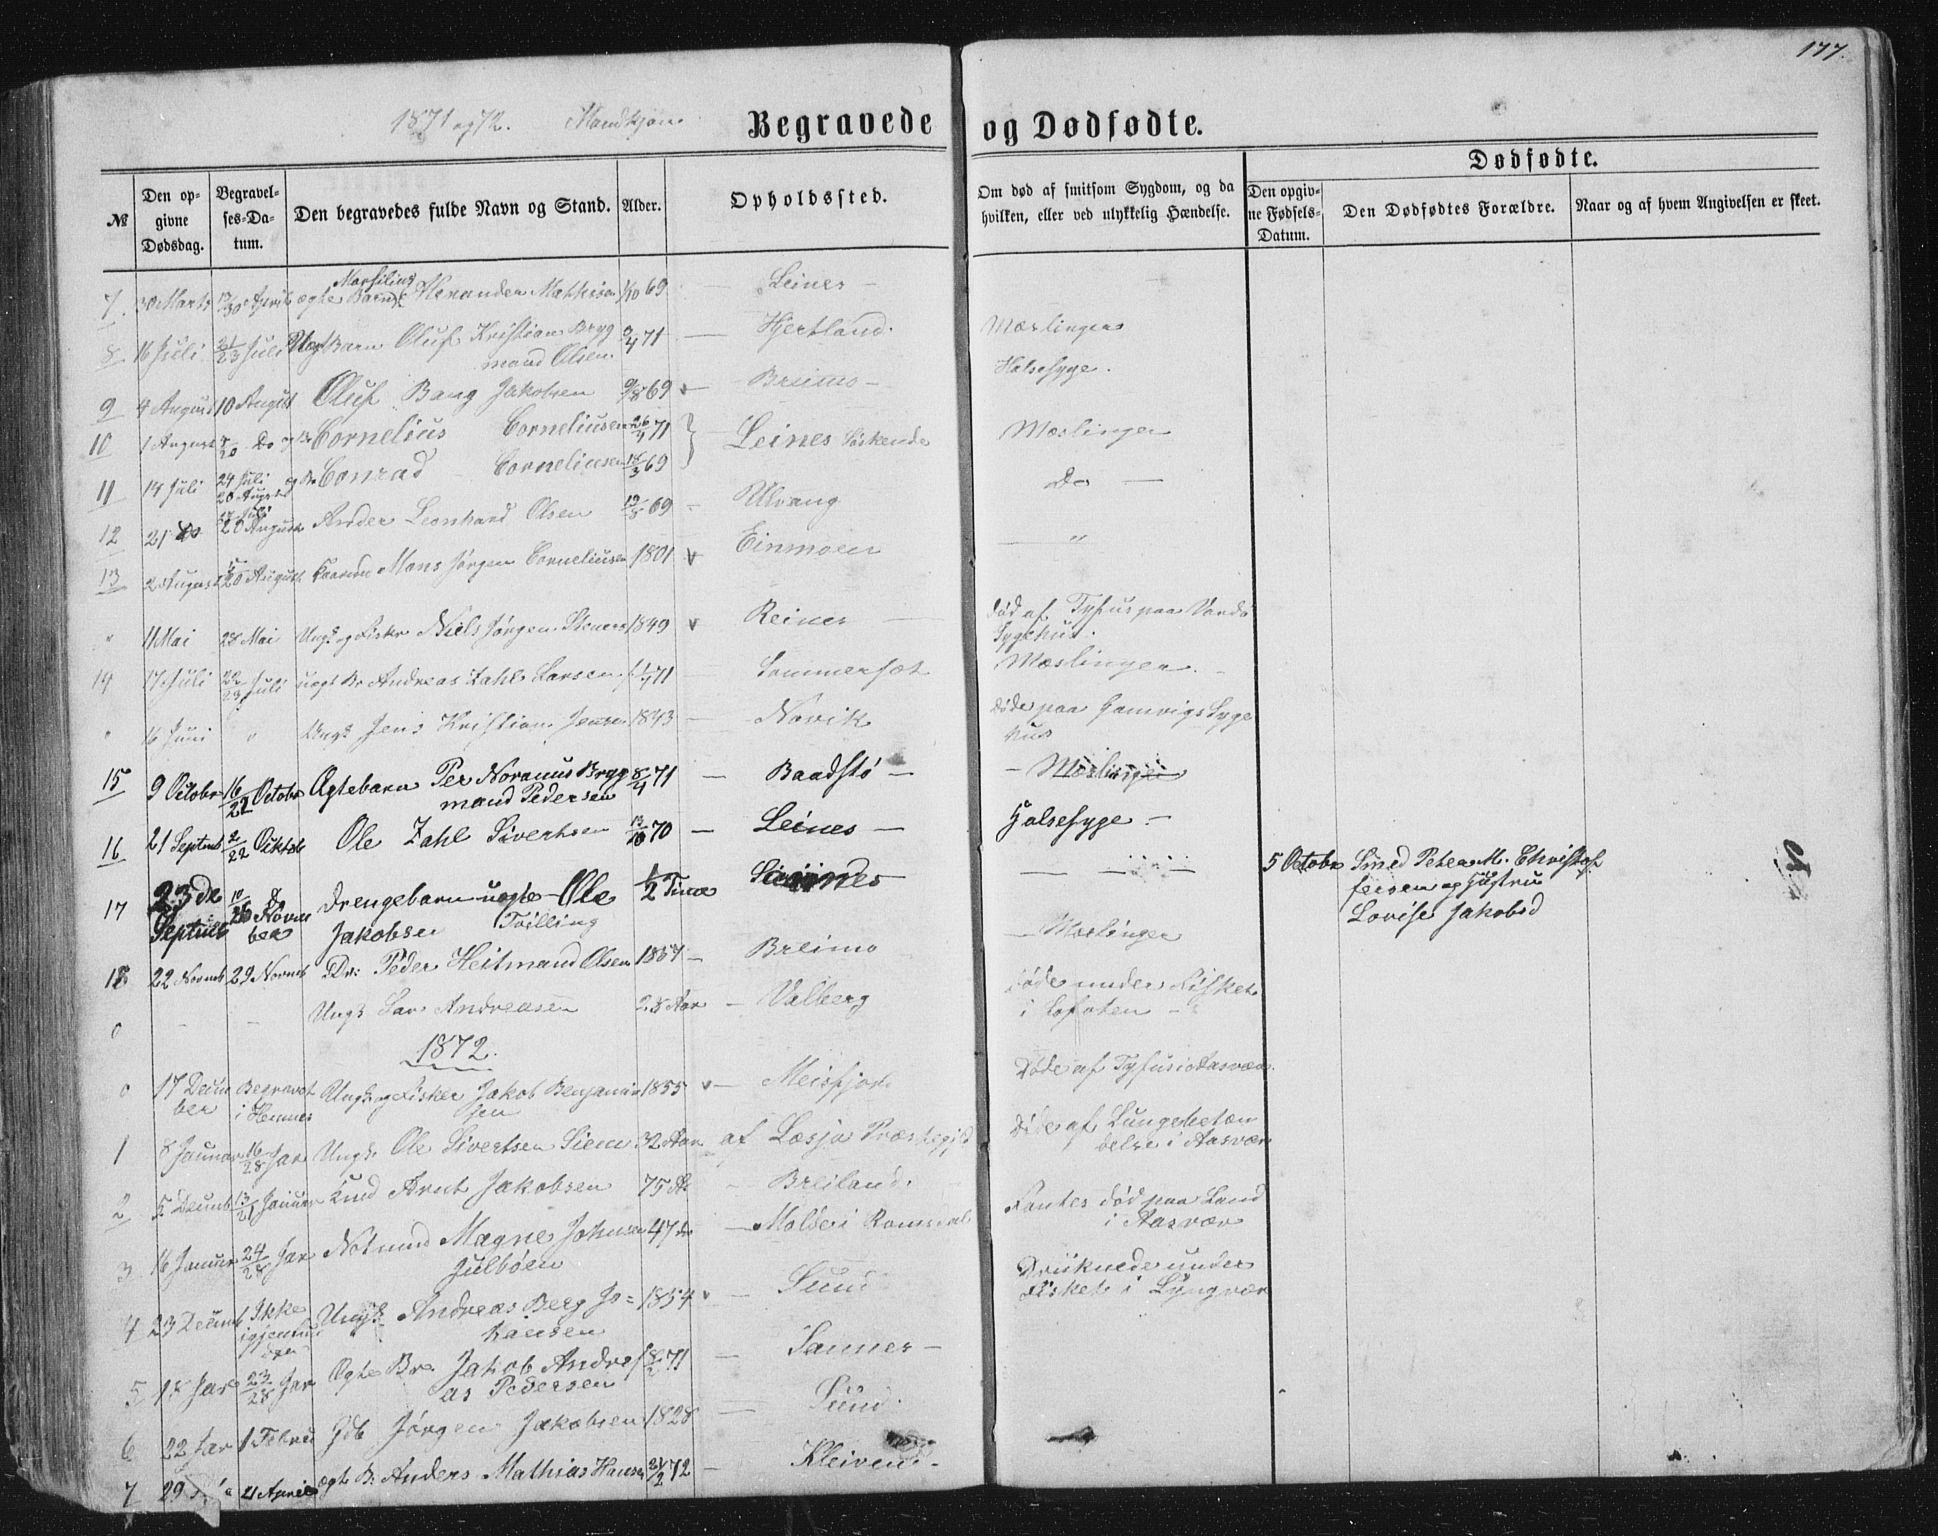 177.
1871 og 72. Mandkjøn.
Begravede og Dødfødte.
№
Den opgivne Dødsdag.
Begravelses-Datum.
Den begravedes fulde Navn og Stand.
Alder.
Opholdssted.
Om død af smitsom Sygdom, og da hvilken, eller ved ulykkelig Hændelse.
Dødfødte.
Den opgivne Fødsels-Datum.
Den Dødfødtes Forældre.
Naar og af hvem Angivelsen er skeet.
7 30 Marts 13/30 April ægte Barn Marsilius Alexander Mathisen 1/10 69 — Leines —
8 16 Juli 21/23 Juli Barn Oluf Kristian Bryg 3/4 71 — Hjertland. Mæslinger
mand Olsen
9 4 August 10 August Oluf Bang Jakobsen 9/8 69 — Breimo — Halsesyge.
10 1 August 7/20 Do Cornelius Corneliusen 26/4 71 } Leines Søskende Mæslinger
11 14 Juli 24 Juli 20 August Conrad Corneliusen 18/3 69 Do —
12 21 Do 20 August Ander Leonhard Olsen 69 — Ulvang — "
13 2 August 20 August Mons Jørgen Corneliusen 1801 Einmoen
" 11 Mai 28 Mai Ungk og Fisker Niels Jørgen 1849 Reines — død af Tyfus paa Vardø
Sygehus.
14 17 Juli 22/23 Juli uægt Br Andreas Zahl Larsen 1/4 71 — Sommersæt Mæslinger. —
" 16 Juni " Ungk Jens Kristian Jensen 1843 — Novik døde paa Gamvigs Syge
hus
15 9 Octobr 16/22 Octobr Ægtebarn Per Noranus Bryg 8/4 71 — Baadstø — — Mæslinger
mand Pedersen
16 21 Septmb 2/22 Oktob Ole Zahl Sivertsen 13/10 70 — Leines — Halsesyge —
17 23 de Septmb 10/26 November Drengebarn uægte Ole 1/2 Time — 5 Octobr Smed Peter M. Christof
Jakobsen Tvilling fersen og Hustru
Lovise Jakobsd
18 22 Novmb 29 Novmb Dr: Peder Heitmand Olsen 1867 — Breimo — Mæslinger
0 — — Ungk Lars Andreasen 28 Aar — Valberg døde under Fisket
i Lofoten —
1872.
0 17 December Begravet i Hemnes Ungk og Fisker Jakob Benjamin 1855 — Meisfjor. Døde af Tyfus i Aasvær.
sen
1 8 Januar 16/28 Jar Ungk. Ole Sivertsen Siem 32 Aar af Læsja Præstegjld døde af Lungebetæn
delse i Aasvær
2 5 Decmb 13/21 Januar Knud Arnt Jakobsen 75 Ar — Breiland.
3 16 Januar 24/28 Jar Notmand Magne Johnsen 47 do — Molde i Romsdal Fantes død paa Land
Julbøen i Aasvær
4 23 Decmb Ikke igjenfunden Ungk Andreas Berg Jo= 1854 — Sund Druknede under
hansen Fisket i Lyngvær
5 18 Jar 23/28 Jar Ægte Br. Jakob Andre 8/2 71 — Sannes —
as Pedersen
6 22 Jar 1 Febru Gdb Jørgen Jakobsen 1828 — Sund.
7 29 21 April ægte B: Anders Mathias Hansen 24/2 72 — Kleiven —